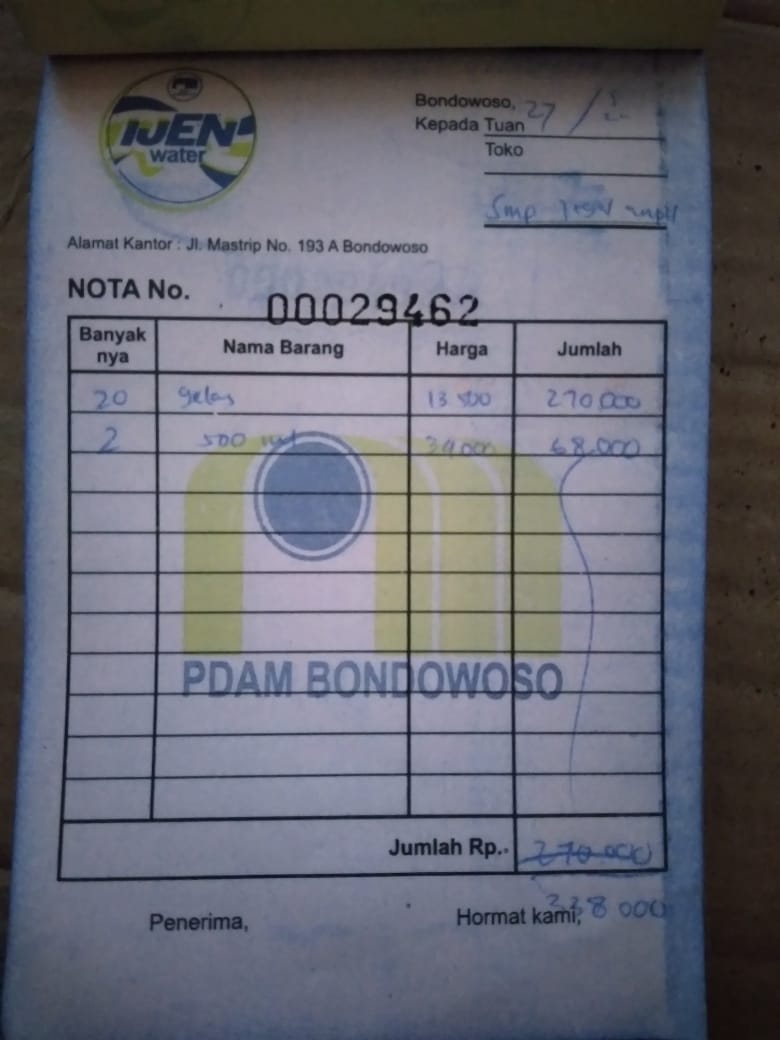 IJEN
water
Bondowoso, 27 /
Kepada Tuan
Toko
Smp
Alamat Kantor : Jl. Mastrip No. 193 A Bondowoso
NOTA No. 00029462
Banyak nya Nama Barang Harga Jumlah
20 gelas 13.500 270.000
2 500 ml 34.000 68.000
PDAM BONDOWOSO
Jumlah Rp.. 270.000
338 000
Penerima, Hormat kami,